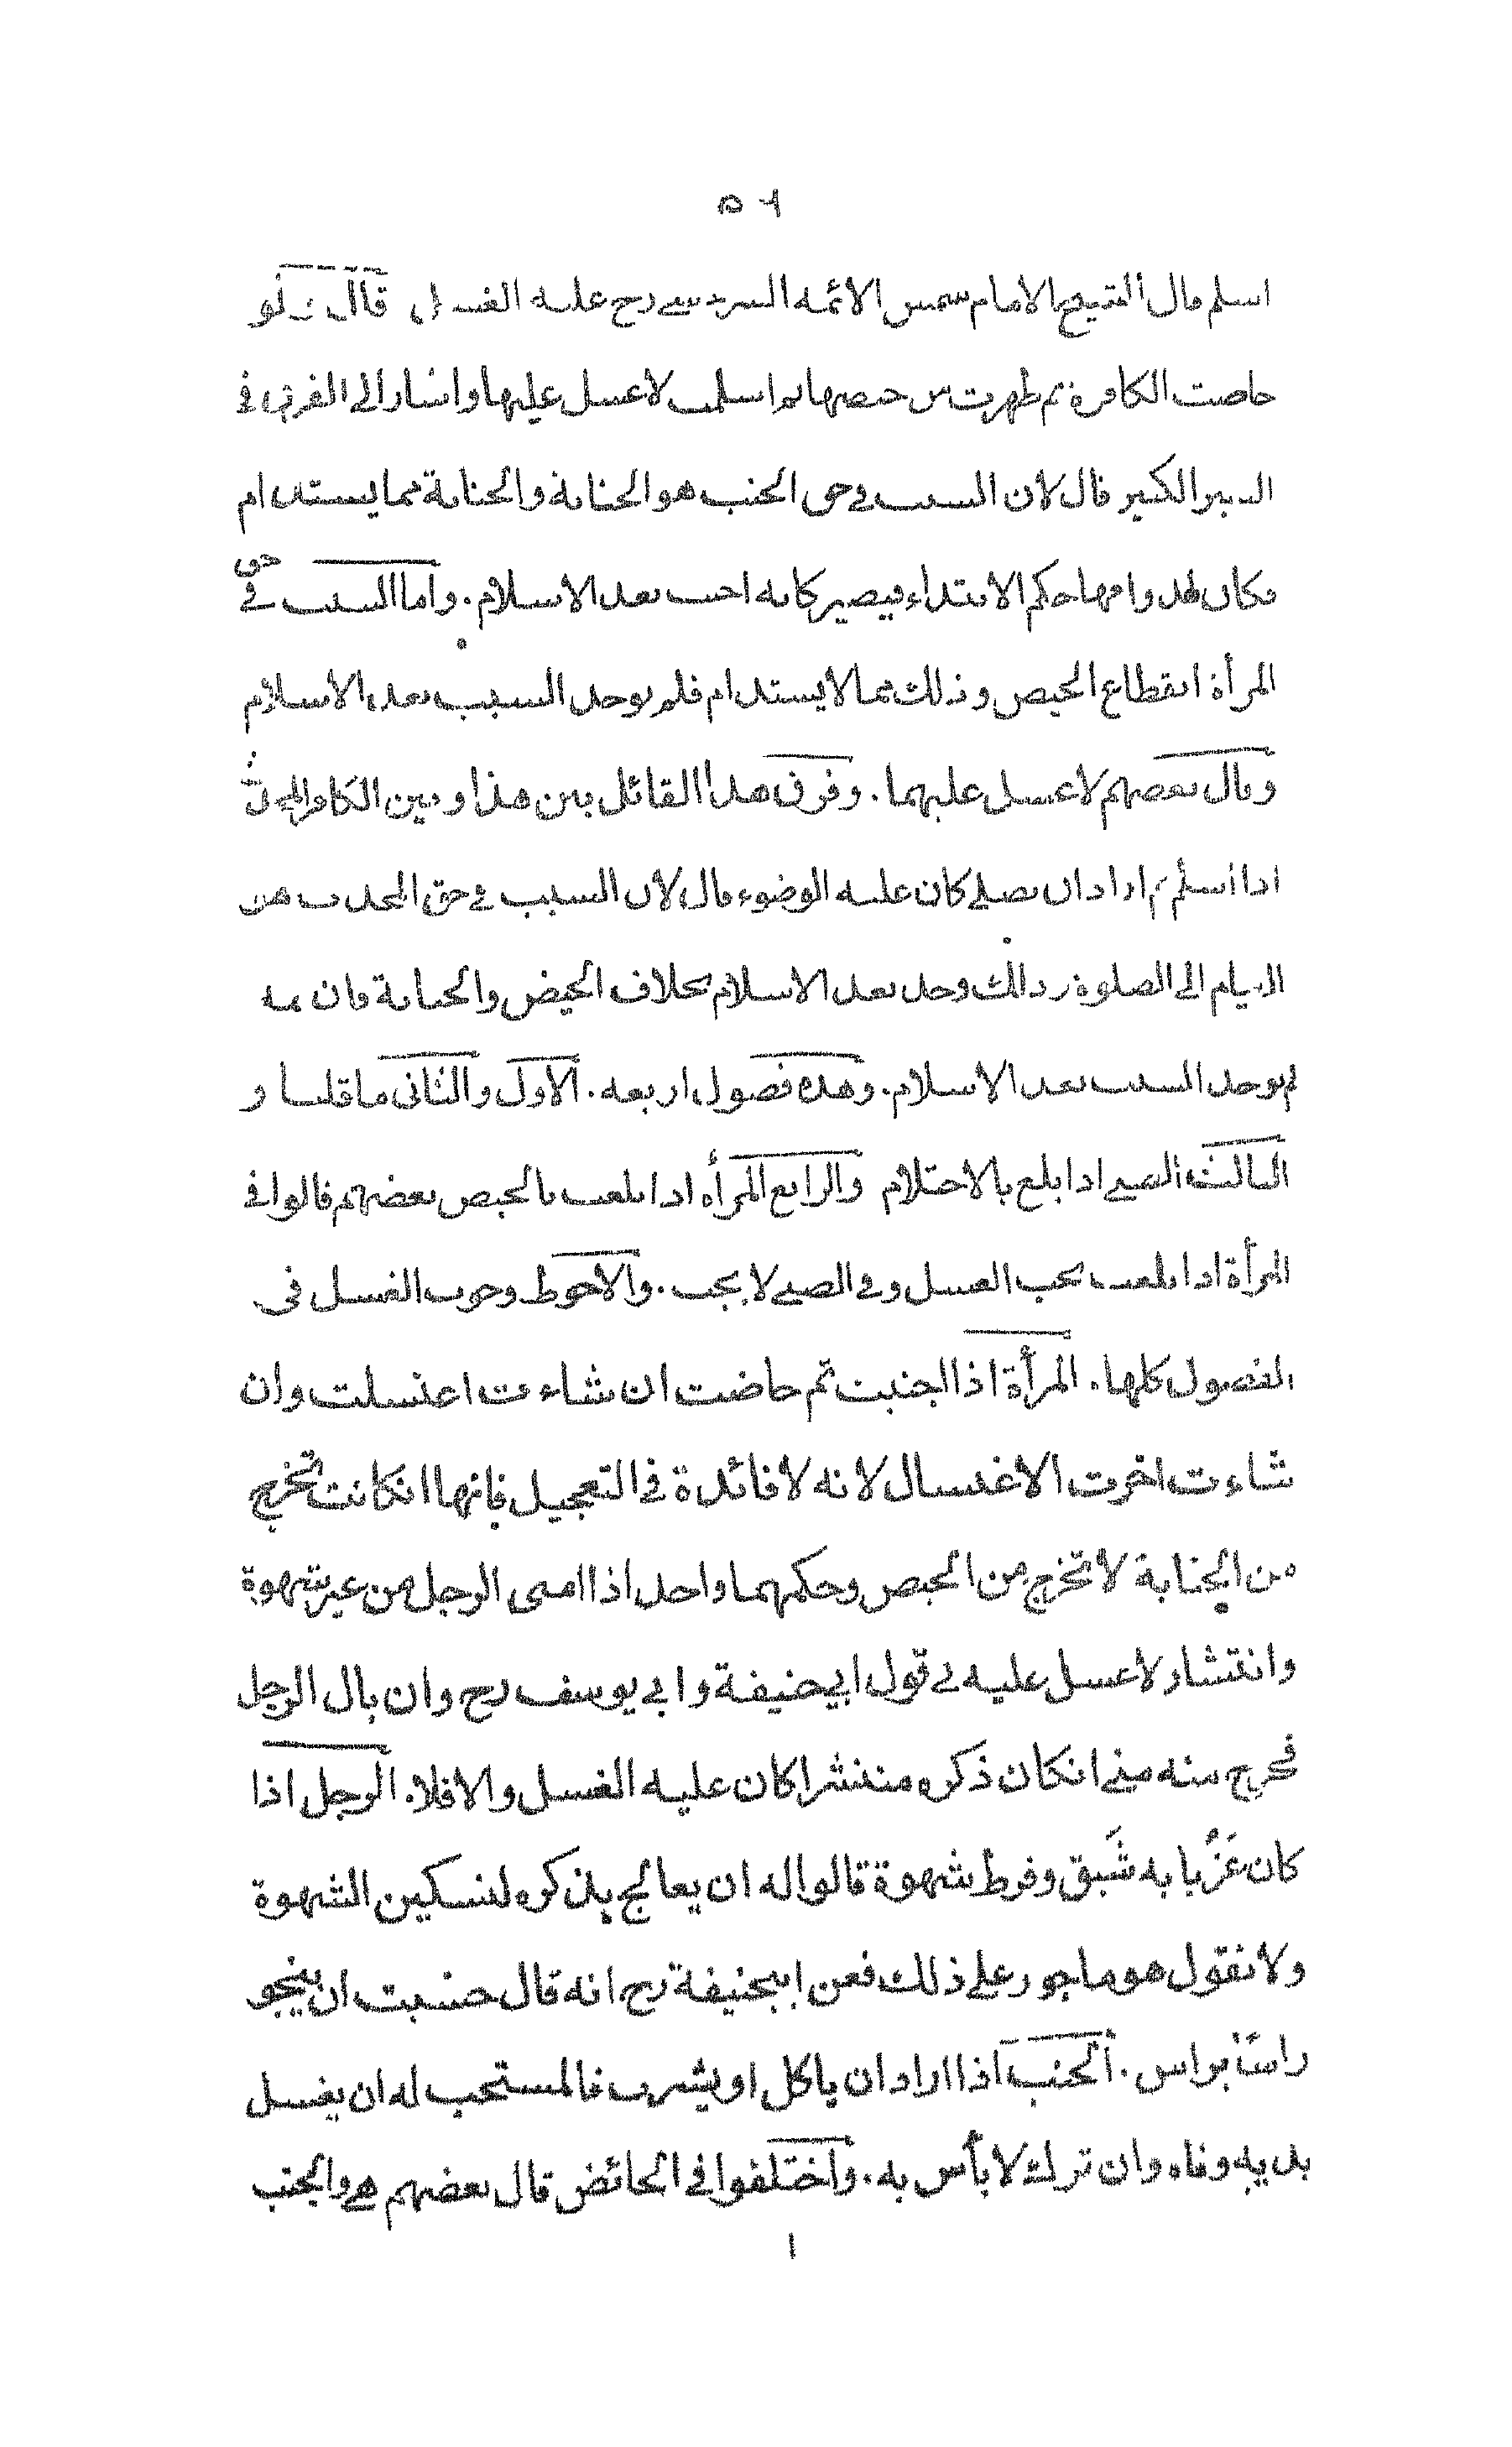 ٥٦
اسلم قال الشيخ الامام شمس الائمه السرخسي رح عليه الغسل قال ولو
حاضت الكافرة ثم طهرت من حيضها ثم اسلمت لا غسل عليها واشار الى الفرق في
السير الكبير قال لان السبب في حق الجنب هو الجنابة والجنابة مما يستدام
فكان لدوامها حكم الابتداء فيصير كانه اجنب بعد الاسلام . واما السبب في حق
المرأة انقطاع الحيض وذلك مما لا يستدام فلم يوجد السبب بعد الاسلام
وقال بعضهم لا غسل عليهما . وفرق هذا القائل بين هذا وبين الكافر المحدث
اذا اسلم ثم اراد ان يصلي كان عليه الوضوء قال لان السبب في حق المحدث هو
القيام الى الصلوة وذلك وجد بعد الاسلام بخلاف الحيض والجنابة فان ثمه
لم يوجد السبب بعد الاسلام . وهذه فصول اربعه . الاول والثاني ما قلنا و
الثالث الصبي اذا بلغ بالاحتلام والرابع المرأة اذا بلغت بالحيض بعضهم قالوا في
المرأة اذا بلغت يجب الغسل وفي الصبي لا يجب . والاحوط وجوب الغسل في
الفصول كلها . المرأة اذا اجنبت ثم حاضت ان شاءت اغتسلت وان
شاءت اخرت الاغتسال لانه لا فائدة في التعجيل فانها انكانت تخرج
من الجنابة لا تخرج من الحيض وحكمهما واحد اذا امنى الرجل من غير شهوة
وانتشار لا غسل عليه في قول ابي حنيفة وابي يوسف رح وان بال الرجل
فخرج منه مني انكان ذكره منتشرا كان عليه الغسل والا فلا . الرجل اذا
كان عَزُبا به شَبق وفرط شهوة قالوا له ان يعالج بذكره لتسكين الشهوة
ولا نقول هو ماجور على ذلك فعن ابيحنيفة رح انه قال حسبت ان ينجو
راسًا براس . الجنب اذا اراد ان ياكل او يشرب فالمستحب له ان يغسل
يديه وفاه وان ترك لا بأس به . واختلفوا في الحائض قال بعضهم هي والجنب
ا